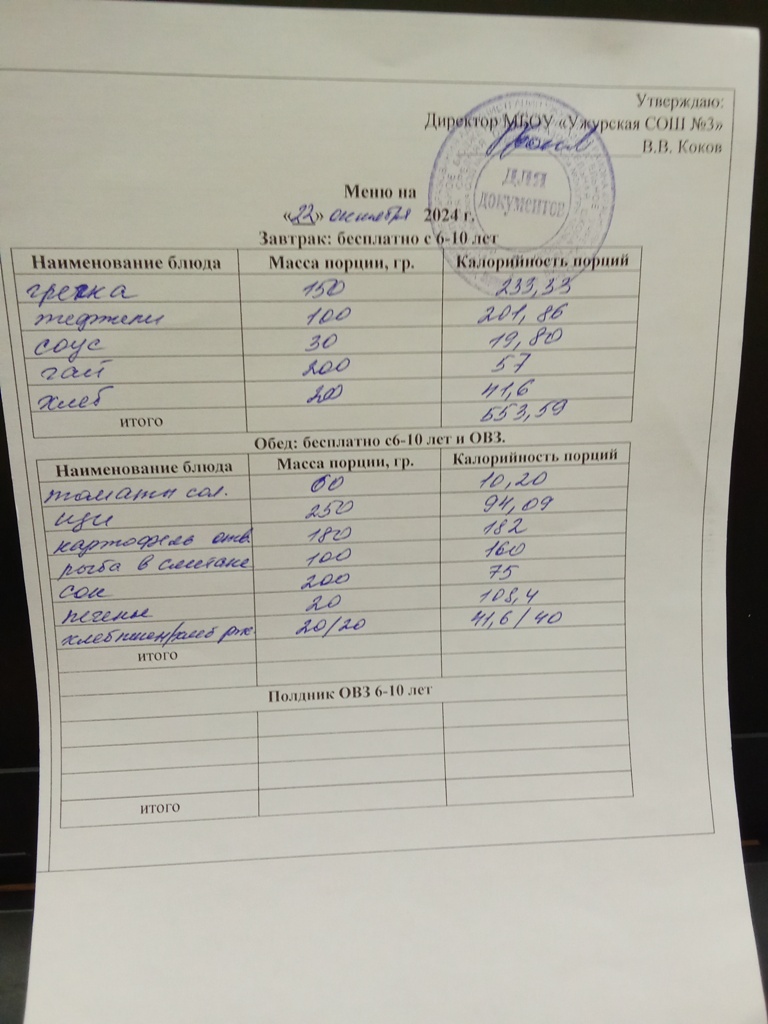 Утверждаю:
Директор МБОУ «Ужурская СОШ №3»
В.В. Коков
ДЛЯ
документов
Меню на
«22» октября 2024 г.
Завтрак: бесплатно с 6-10 лет
Наименование блюда Масса порции, гр. Калорийность порций
гречка 150 233,33
тефтели 100 201,86
соус 30 19,80
чай 200 57
хлеб 20 41,6
итого 553,59
Обед: бесплатно с6-10 лет и ОВЗ.
Наименование блюда Масса порции, гр. Калорийность порций
томаты сол. 60 10,20
щи 250 94,09
картофель отв 180 182
рыба в сметане 100 160
сок 200 75
печенье 20 108,4
хлеб пшен/хлеб рж 20/20 41,6/40
итого
Полдник ОВЗ 6-10 лет
итого